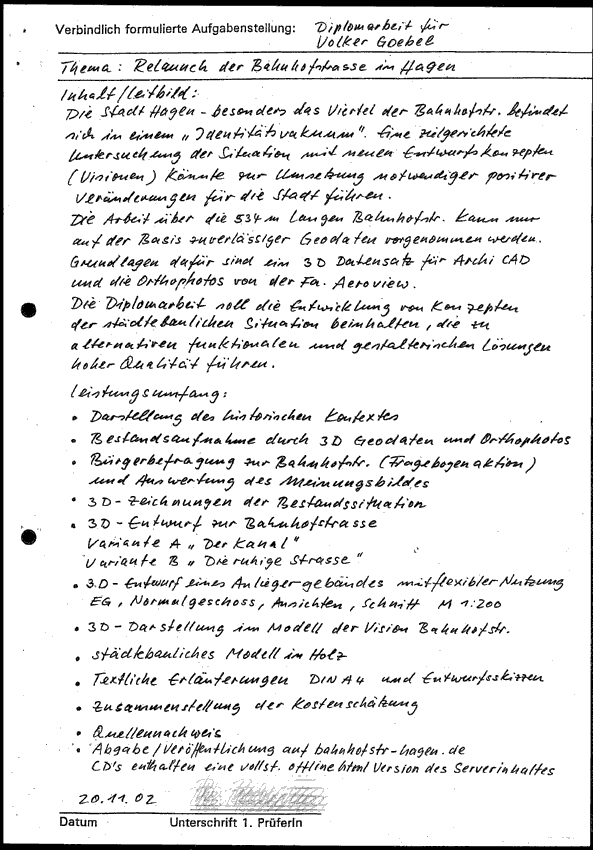 Verbindlich formulierte Aufgabenstellung: Diplomarbeit für
Volker Goebel
Thema: Relaunch der Bahnhofstrasse in Hagen
Inhalt/Leitbild:
Die Stadt Hagen - besonders das Viertel der Bahnhofstr. befindet
sich in einem „Identitätsvakuum". Eine zielgerichtete
Untersuchung der Situation mit neuen Entwurfskonzepten
(Visionen) könnte zur Umsetzung notwendiger positiver
Veränderungen für die Stadt führen.
Die Arbeit über die 534 m langen Bahnhofstr. kann nur
auf der Basis zuverlässiger Geodaten vorgenommen werden.
Grundlagen dafür sind ein 3D Datensatz für Archi CAD
und die Orthophotos von der Fa. Aeroview.
Die Diplomarbeit soll die Entwicklung von Konzepten
der städtebaulichen Situation beinhalten, die zu
alternativen funktionalen und gestalterischen Lösungen
hoher Qualität führen.
Leistungsumfang:
• Darstellung des historischen Kontextes
• Bestandsaufnahme durch 3D Geodaten und Orthophotos
• Bürgerbefragung zur Bahnhofstr. (Fragebogenaktion)
und Auswertung des Meinungsbildes
• 3D-Zeichnungen der Bestandssituation
• 3D-Entwurf zur Bahnhofstrasse
Variante A „Der Kanal"
Variante B „Die ruhige Strasse"
• 3D-Entwurf eines Anliegergebäudes mit flexibler Nutzung
EG, Normalgeschoss, Ansichten, Schnitt M 1:200
• 3D-Darstellung im Modell der Vision Bahnhofstr.
• städtebauliches Modell in Holz
• Textliche Erläuterungen DIN A4 und Entwurfsskizzen
• Zusammenstellung der Kostenschätzung
• Quellennachweis
• Abgabe/Veröffentlichung auf bahnhofstr-hagen.de
CD's enthalten eine vollst. offline html Version des Serverinhaltes
20.11.02
Datum Unterschrift 1. PrüferIn